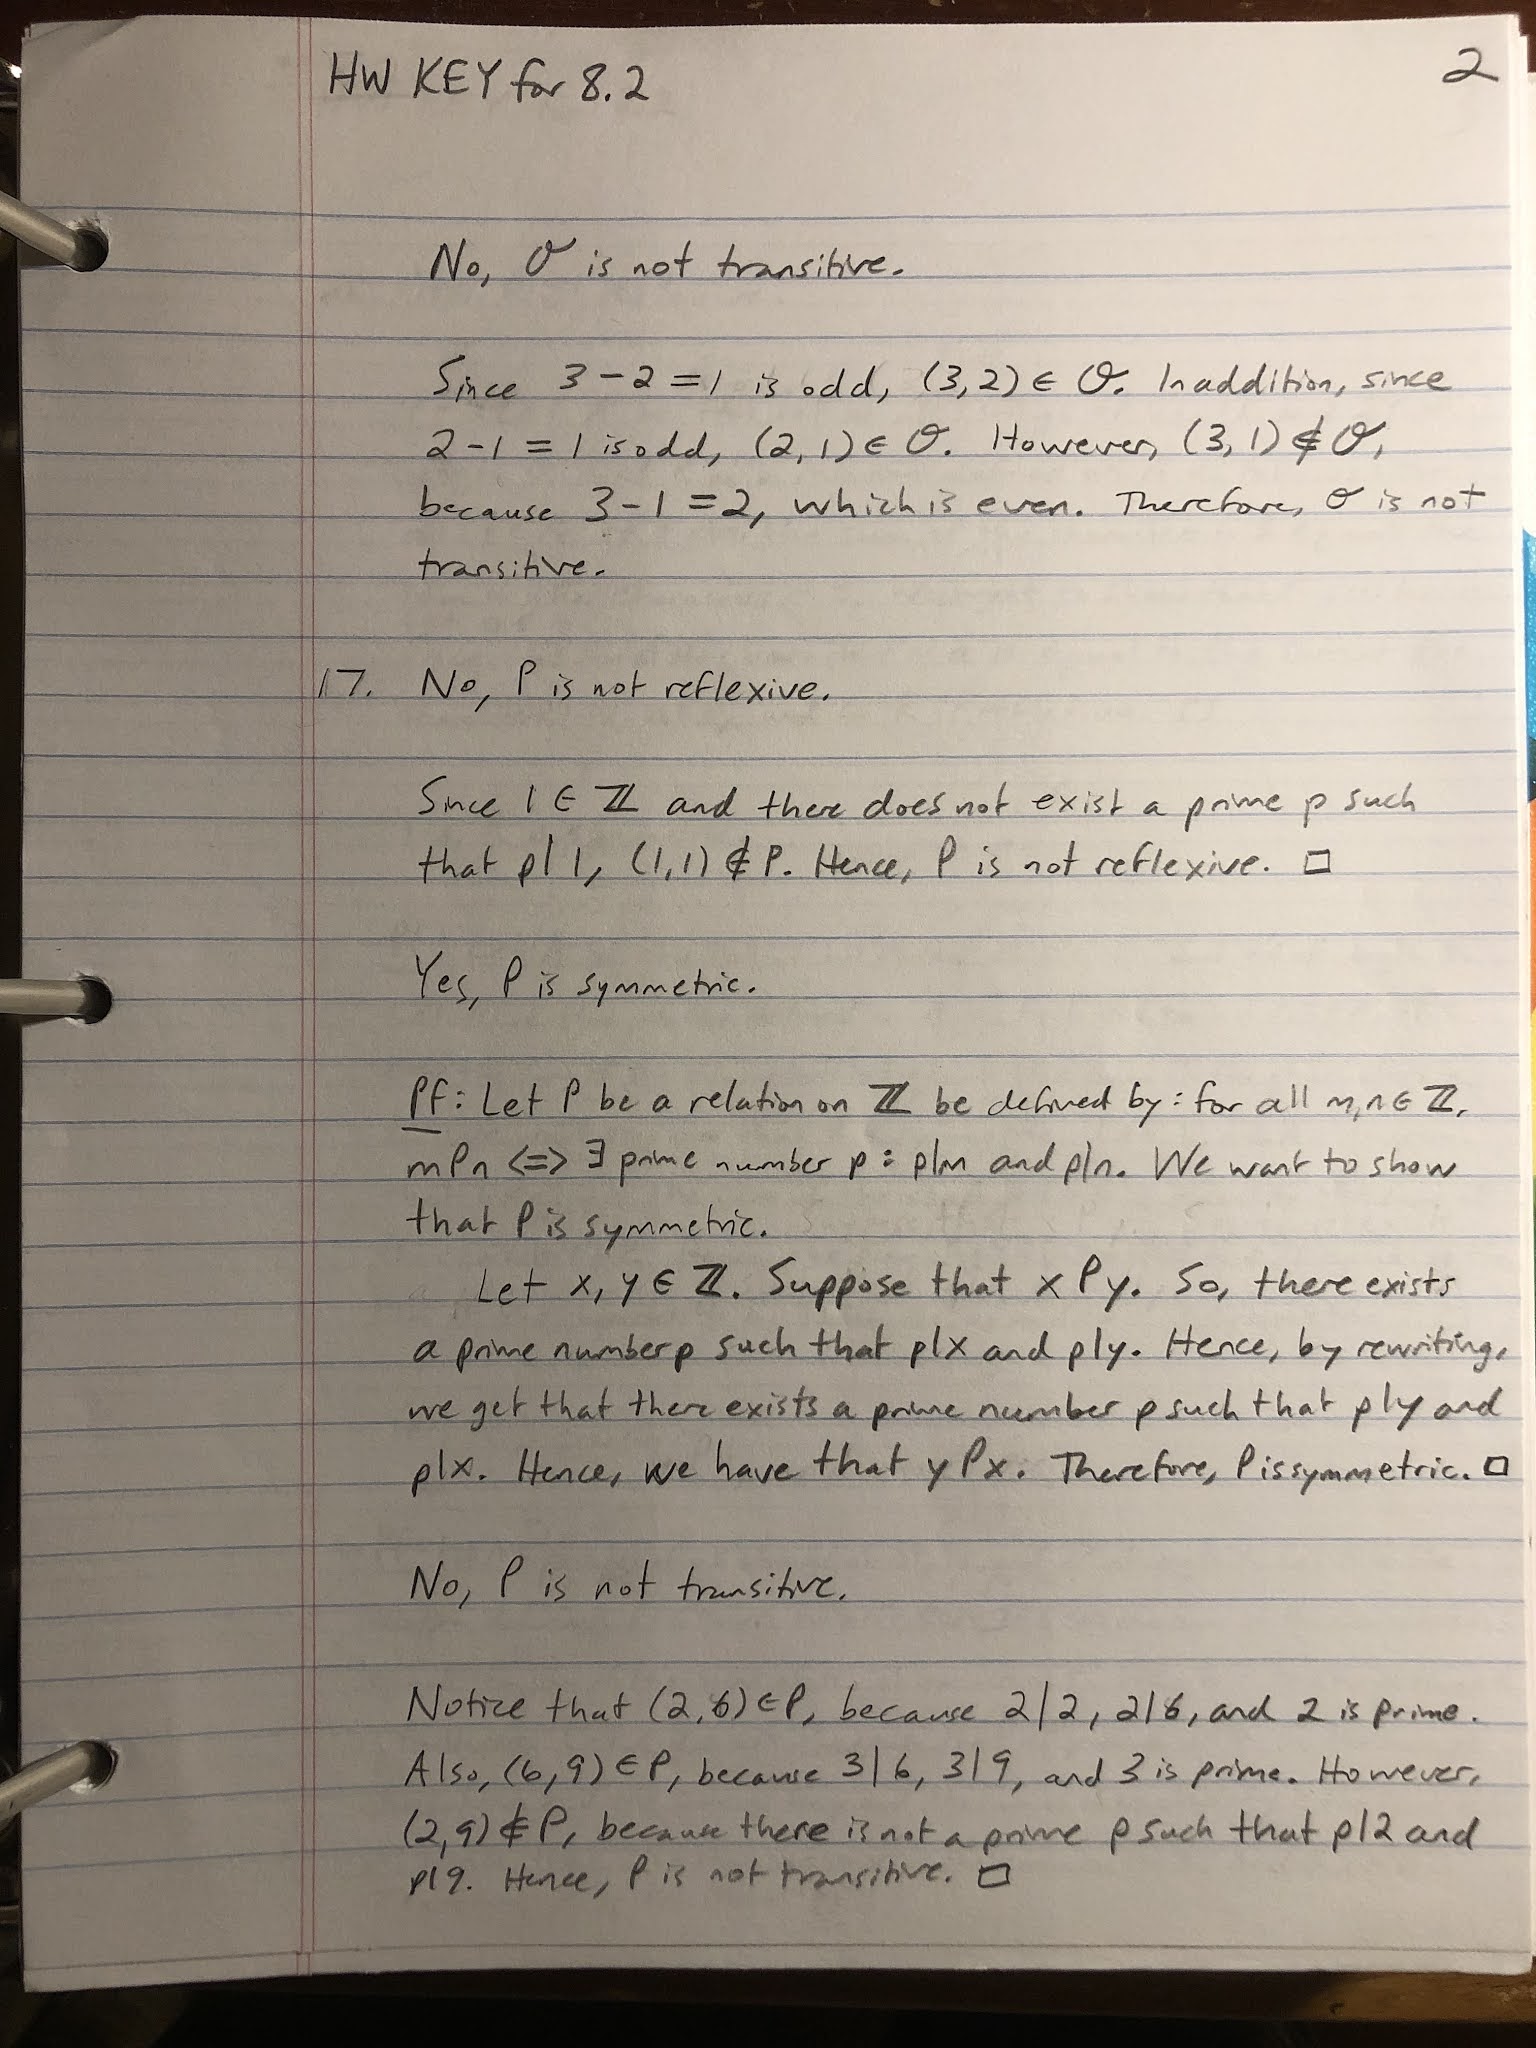 HW KEY for 8.2
2
No, O is not transitive.
Since 3-2=1 is odd, (3,2) ∈ O. In addition, since
2-1=1 is odd, (2,1) ∈ O. However, (3,1) ∉ O,
because 3-1=2, which is even. Therefore, O is not
transitive.
17. No, P is not reflexive.
Since 1 ∈ ℤ and there does not exist a prime p such
that p|1, (1,1) ∉ P. Hence, P is not reflexive. □
Yes, P is symmetric.
Pf: Let P be a relation on ℤ be defined by: for all m,n ∈ ℤ,
mPn <=> ∃ prime number p : p|m and p|n. We want to show
that P is symmetric.
Let x, y ∈ ℤ. Suppose that x P y. So, there exists
a prime number p such that p|x and p|y. Hence, by rewriting,
we get that there exists a prime number p such that p|y and
p|x. Hence, we have that y P x. Therefore, P is symmetric. □
No, P is not transitive.
Notice that (2,6) ∈ P, because 2|2, 2|6, and 2 is prime.
Also, (6,9) ∈ P, because 3|6, 3|9, and 3 is prime. However,
(2,9) ∉ P, because there is not a prime p such that p|2 and
p|9. Hence, P is not transitive. □